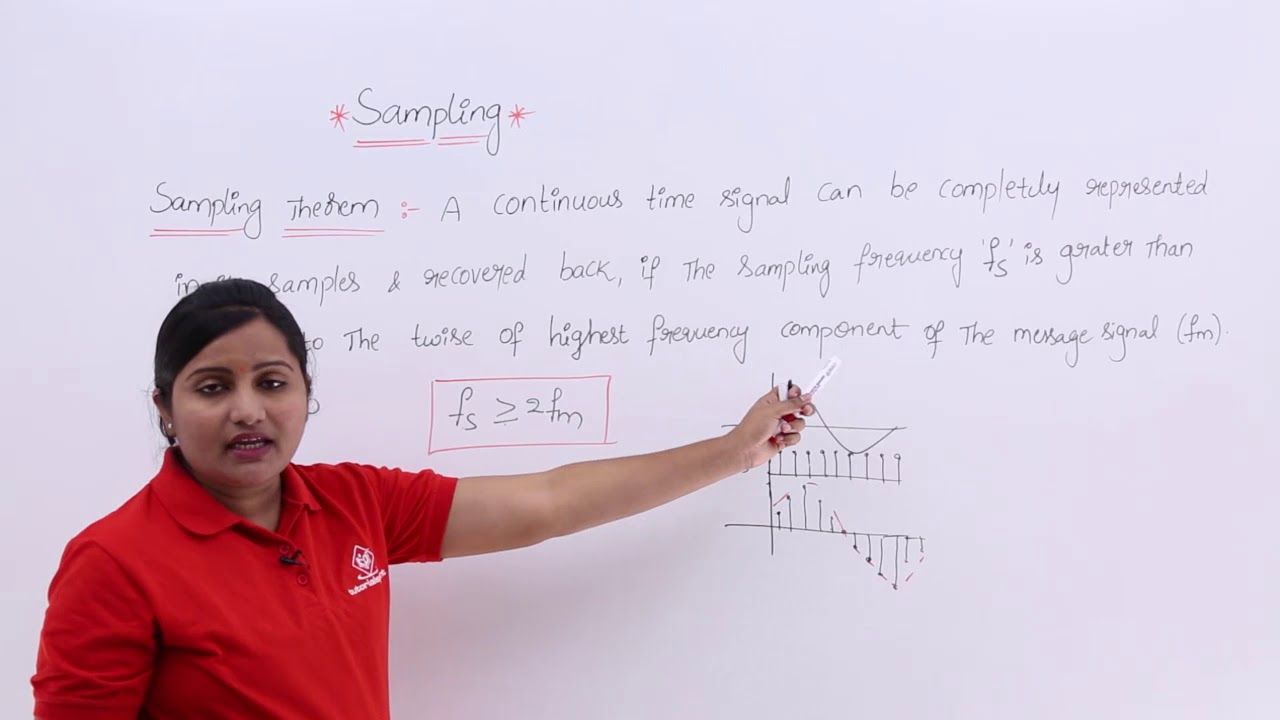 * Sampling *
Sampling Therem :- A continuous time signal can be completely represented
in samples & recovered back, if The sampling frequency 'fs' is grater Than
to The twise of highest frequency component of The message signal (fm).
fs ≥ 2fm